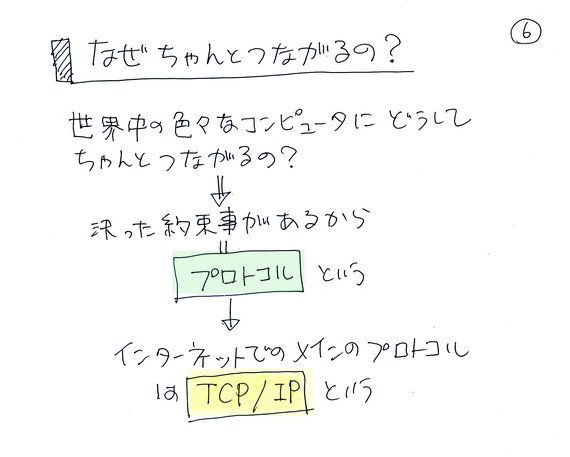 ⑥
なぜちゃんとつながるの？
世界中の色々なコンピュータにどうして
ちゃんとつながるの？
決った約束事があるから
プロトコル という
インターネットでのメインのプロトコル
は TCP/IP という